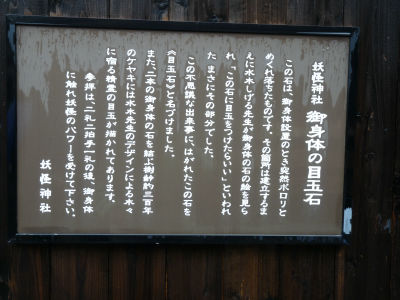 妖怪神社 御身体の目玉石
この石は、御身体設置のとき突然ポロリと
めくれ落ちたものです。その箇所は建立するま
えに水木しげる先生が御身体の石の絵を見ら
れ、「この石に目玉をつけたらいい」といわれ
た まさにその部分でした。
この不思議な出来事に、はがれたこの石を
《目玉石》と名づけました。
また、二本の御身体の石を結ぶ樹齢約三百年
のケヤキには水木先生のデザインによる木々
に宿る精霊の目玉が描かれてあります。
参拝は、二礼二拍手一礼の後、御身体
に触れ妖怪のパワーを受けて下さい。
妖怪神社